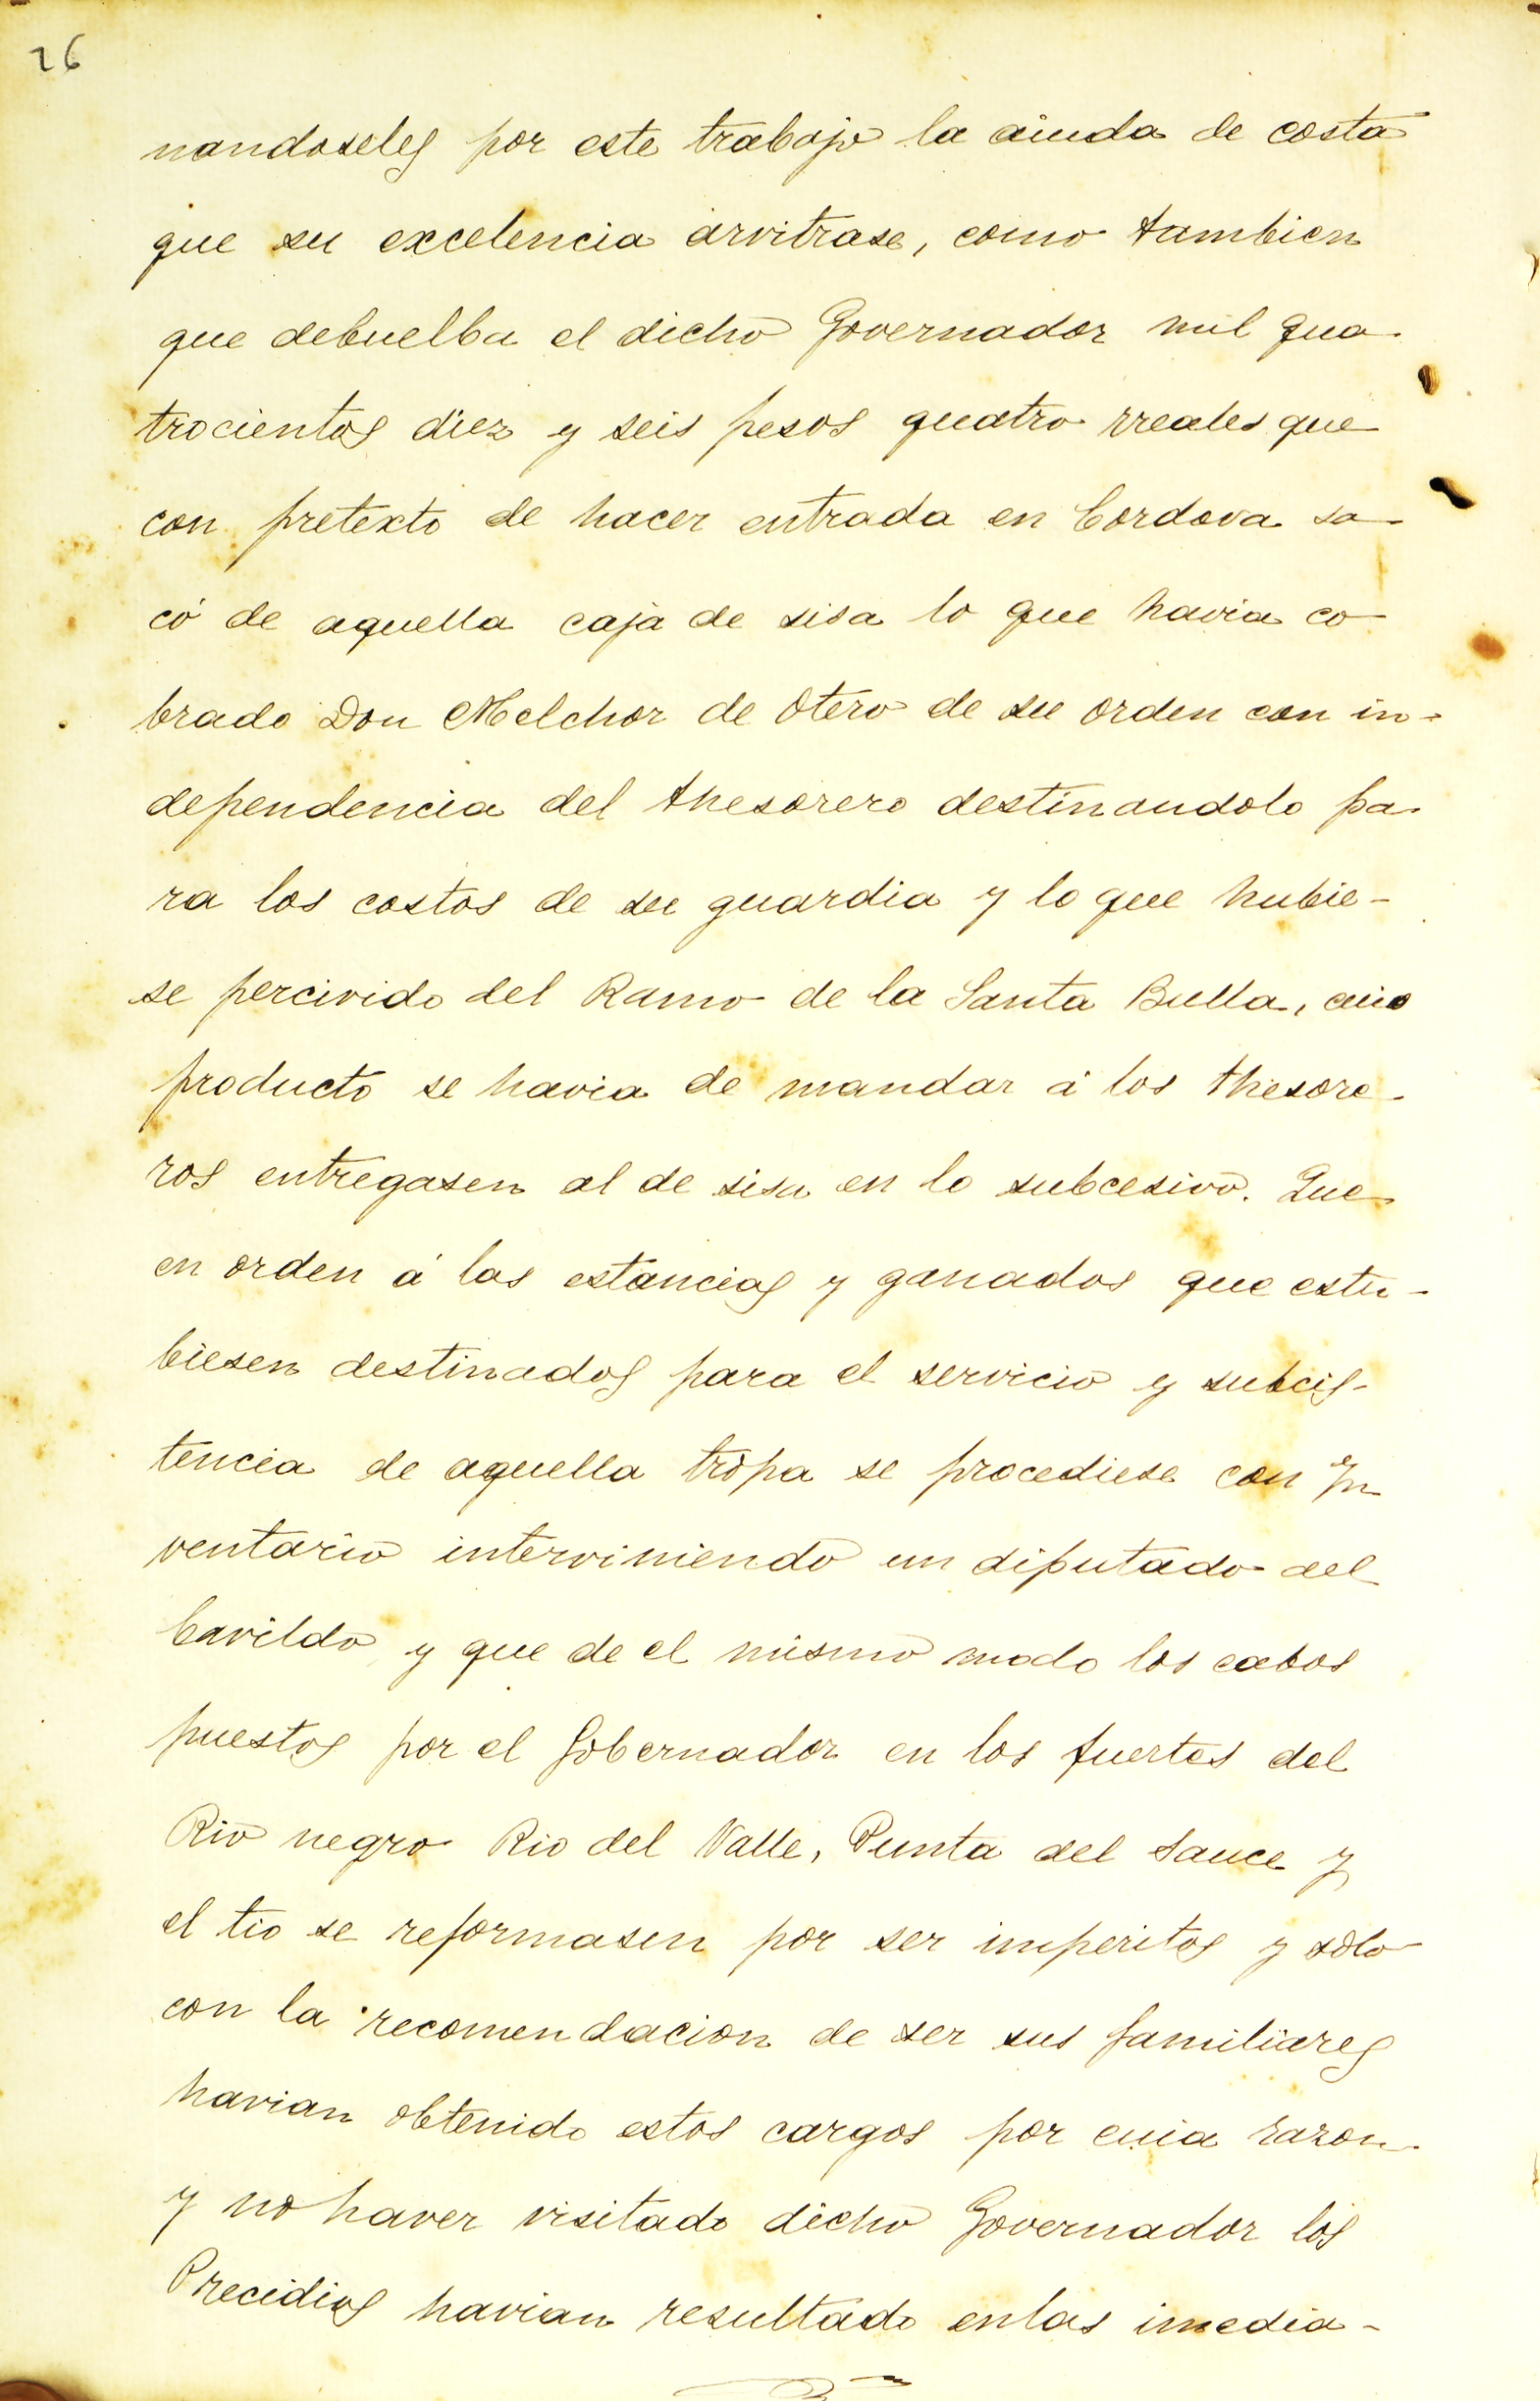 26
nandoseles por este trabajo la aiuda de costa
que su excelencia arvitrase, como tambien
que debuelba el dicho Governador mil qua-
trocientos diez y seis pesos quatro rreales que
con pretexto de hacer entrada en Cordova sa-
có de aquella caja de sisa lo que havia co-
brado Don Melchor de Otero de su orden con in-
dependencia del thesorero destinandolo pa-
ra los costos de su guardia y lo que hubie-
se percivido del Ramo de la Santa Bulla, cuio
producto se havia de mandar á los thesore-
ros entregasen al de sisa en lo subcesivo. Que
en orden á las estancias y ganados que estu-
biesen destinados para el servicio y subcis-
tencia de aquella tropa se procediese con In
ventario interviniendo un diputado del
Cavildo y que de el mismo modo los cabos
puestos por el Gobernador en los fuertes del
Rio negro Rio del Valle, Punta del Sauce y
el tio se reformasen por ser imperitos y solo
con la recomendacion de ser sus familiares
havian obtenido estos cargos por cuia razon
y no haver visitado dicho Governador los
Precidios havian resultado enlas imedia-